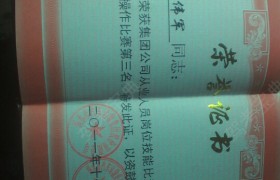 荣誉证书
伟军 同志：
荣获集团公司从业人员岗位技能比
操作比赛第三名
发此证，以资
二〇一一年十